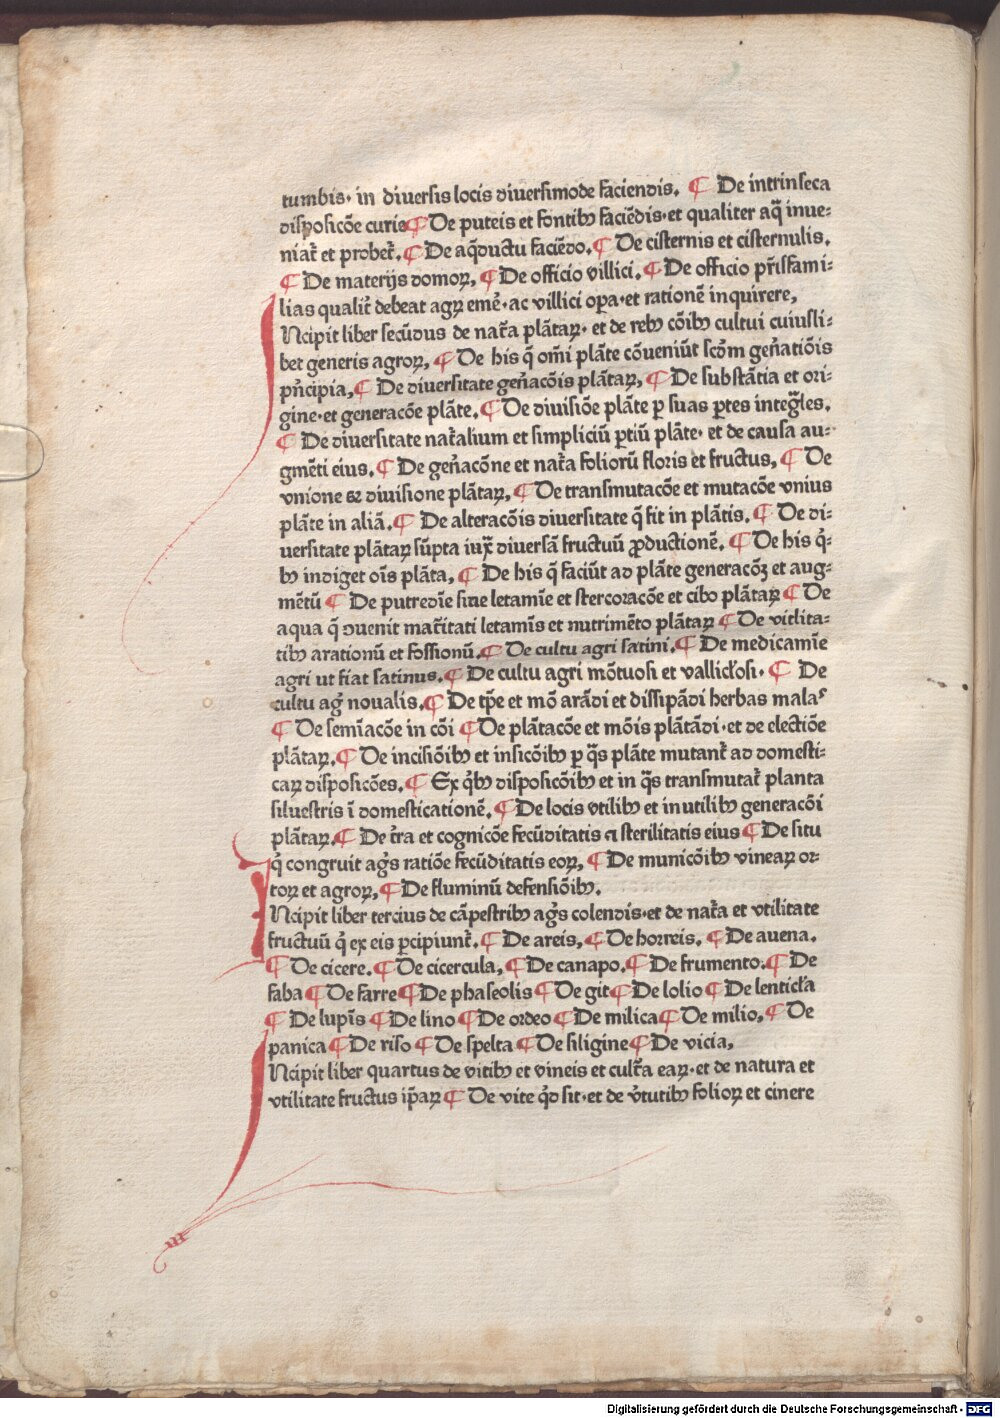 tumbis· in diuersis locis diuersimode faciendis. ¶ De intrinseca
disposicõe curie ¶ De puteis et fontibꝫ faciẽdis·et qualiter aq̃ inue⸗
niat᷑ et probet᷑. ¶ De aq̃ductu faciẽdo. ¶ De cisternis et cisternulis.
¶ De materijs domoꝝ, ¶ De officio villici. ¶ De officio pr̃isfami⸗
lias qualit᷑ debeat agꝝ emẽ·ac villici opa·et rationẽ inquirere,
INcipit liber secũdus de nat᷑a plãtaꝝ· et de rebꝫ cõibꝫ cultui cuiusli⸗
bet generis agroꝝ, ¶ De his q̃ om̃i plãte cõueniũt scd̃m geñatiõis
pñcipia, ¶ De diuersitate geñacõis plãtaꝝ, ¶ De substãtia et ori⸗
gine·et generacõe plãte. ¶ De diuisiõe plãte ꝑ suas ꝑtes integ̃les.
¶ De diuersitate nat᷑alium et simpliciũ ꝑtiũ plãte· et de causa au⸗
gmẽti eius. ¶ De geñacõne et nat᷑a folioꝛũ floris et fructus, ¶ De
vnione et diuisione plãtaꝝ, ¶ De transmutacõe et mutacõe vnius
plãte in aliã. ¶ De alteracõis diuersitate q̃ fit in plãtis. ¶ De di⸗
uersitate plãtaꝝ sũpta iux̃ diuersã fructuũ ꝓductionẽ. ¶ De his q᷑⸗
bꝫ indiget oĩs plãta, ¶ De his q̃ faciũt ad plãte generacõꝫ et aug⸗
mẽtũ ¶ De putredĩe siue letamĩe et stercoꝛacõe et cibo plãtaꝝ ¶ De
aqua q̃ ɔuenit mat᷑itati letamĩs et nutrimẽto plãtaꝝ ¶ De vtilita⸗
tibꝫ arationũ et fossionũ. ¶ De cultu agri satini. ¶ De medicamĩe
agri ut fiat satinus. ¶ De cultu agri mõtuosi et vallicl̃osi· ¶ De
cultu ag᷑ noualis. ¶ De tp̃e et mõ arãdi et dissipãdi herbas malas
¶ De semĩacõe in cõi ¶ De plãtacõe et mõis plãtãdi·et de electiõe
plãtaꝝ. ¶ De incisiõibꝫ et insicõibꝫ ꝑ q̃s plãte mutant᷑ ad domesti⸗
caꝝ disposicões. ¶ Ex q᷑bꝫ disposicõibꝫ et in q̃s transmutat᷑ planta
siluestris ĩ domesticationẽ. ¶ De locis vtilibꝫ et inutilibꝫ generacõi
plãtaꝝ. ¶ De t᷑ra et cognicõe fecũditatis ⁊ sterilitatis eius ¶ De situ
q᷑ congruit ag᷑s ratiõe fecũditatis eoꝝ, ¶ De municõibꝫ vineaꝝ oꝛ⸗
toꝝ et agroꝝ, ¶ De fluminũ defensiõibꝫ.
INcipit liber tercius de cãpestribꝫ ag᷑s colendis·et de nat᷑a et vtilitate
fructuũ q᷑ ex eis ꝑcipiunt᷑. ¶ De areis, ¶ De horreis, ¶ De auena.
¶ De cicere. ¶ De cicercula, ¶ De canapo. ¶ De frumento. ¶ De
faba ¶ De farre ¶ De phaseolis ¶ De git ¶ De lolio ¶ De lenticl̃a
¶ De lupĩs ¶ De lino ¶ De oꝛdeo ¶ De milica ¶ De milio, ¶ De
panica ¶ De riso ¶ De spelta ¶ De siligine ¶ De vicia,
INcipit liber quartus de vitibꝫ et vineis et cult᷑a eaꝝ·et de natura et
vtilitate fructus ip̃aꝝ ¶ De vite q᷑d sit·et de v᷑tutibꝫ folioꝝ et cinere
Digitalisierung gefördert durch die Deutsche Forschungsgemeinschaft - DFG